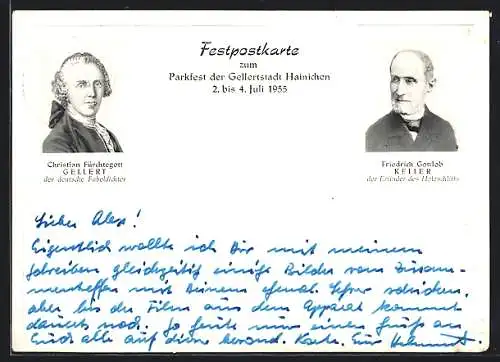 Festpostkarte
zum
Parkfest der Gellertstadt Hainichen
2. bis 4. Juli 1955
Christian Fürchtegott
GELLERT
der deutsche Fabeldichter
Friedrich Gottlob
KELLER
der Erfinder des Holzschliffs
Lieber Alex!
Eigentlich wollte ich Dir mit meinem
Schreiben gleichzeitig einige Bilder vom Zusam-
mentreffen mit Deinem ehemal. Lehrer schicken,
aber bis der Film aus dem Apparat kommt
dauerts noch. So heute nur einen Gruß an
Euch alle auf dieser besond. Karte. Euer Helmut